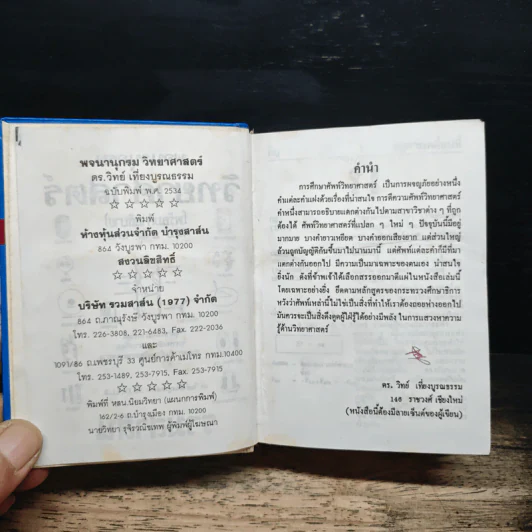 พจนานุกรม วิทยาศาสตร์
ดร.วิทย์ เที่ยงบูรณธรรม
ฉบับพิมพ์ พ.ศ. 2534
พิมพ์
ห้างหุ้นส่วนจำกัด บำรุงสาส์น
864 วังบูรพา กทม. 10200
สงวนลิขสิทธิ์
จำหน่าย
บริษัท รวมสาส์น (1977) จำกัด
864 ถ.ภาณุรังษี วังบูรพา กทม. 10200
โทร. 226-3808, 221-6483, Fax. 222-2036
และ
1091/86 ถ.เพชรบุรี 33 ศูนย์การค้าเมโทร กทม.10400
โทร. 253-1489, 253-7915, Fax. 253-7915
พิมพ์ที่ หสน.นิยมวิทยา (แผนกการพิมพ์)
162/2-6 ถ.บำรุงเมือง กทม. 10200
นายวิทยา รุจิรวณิชเทพ ผู้พิมพ์ผู้โฆษณา
คำนำ
การศึกษาศัพท์วิทยาศาสตร์ เป็นการผจญภัยอย่างหนึ่ง
คำแต่ละคำแฝงด้วยเรื่องที่น่าสนใจ การตีความศัพท์วิทยาศาสตร์
คำหนึ่งสามารถอธิบายแตกต่างกันไปตามสาขาวิชาต่าง ๆ ที่ถูก
ต้องได้ ศัพท์วิทยาศาสตร์ที่แปลก ๆ ใหม่ ๆ ปัจจุบันนี้มีอยู่
มากมาย บางคำยาวเหยียด บางคำออกเสียงยาก แต่ส่วนใหญ่
ล้วนถูกบัญญัติขึ้นมาไม่นานมานี้ แต่ศัพท์แต่ละคำก็มีที่มา
แตกต่างกันออกไป มีความเป็นมาเฉพาะของตนเอง น่าสนใจ
ยิ่งนัก ดังที่ข้าพเจ้าได้เลือกสรรออกมาดีแต่ในหนังสือเล่มนี้
โดยเฉพาะอย่างยิ่ง ยึดตามหลักสูตรของกระทรวงศึกษาธิการ
หวังว่าศัพท์เหล่านี้ไม่ใช่เป็นสิ่งที่ทำให้เราต้องถอยห่างออกไป
มันควรจะเป็นสิ่งดึงดูดผู้ใฝ่รู้ได้อย่างมีพลัง ในการแสวงหาความ
รู้ด้านวิทยาศาสตร์
ดร. วิทย์ เที่ยงบูรณธรรม
146 ราชวงศ์ เชียงใหม่
(หนังสือนี้ต้องมีลายเซ็นต์ของผู้เขียน)